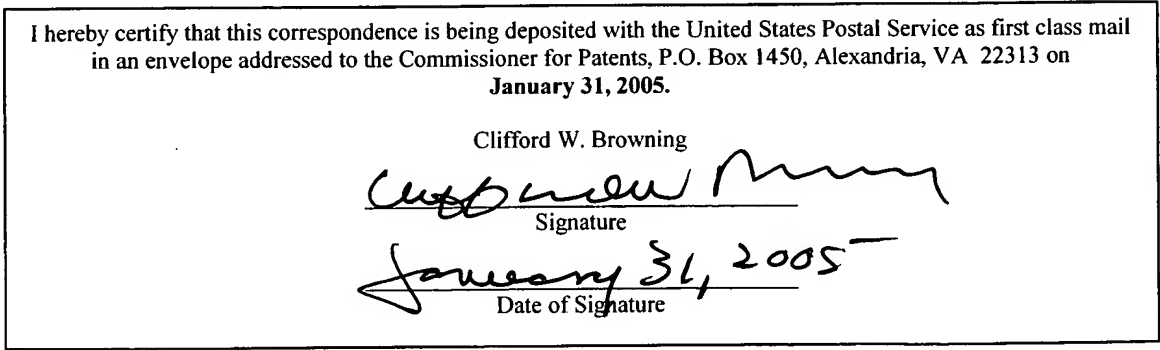 I hereby certify that this correspondence is being deposited with the United States Postal Service as first class mail
in an envelope addressed to the Commissioner for Patents, P.O. Box 1450, Alexandria, VA 22313 on
January 31, 2005.
Clifford W. Browning
Signature
January 31, 2005
Date of Signature